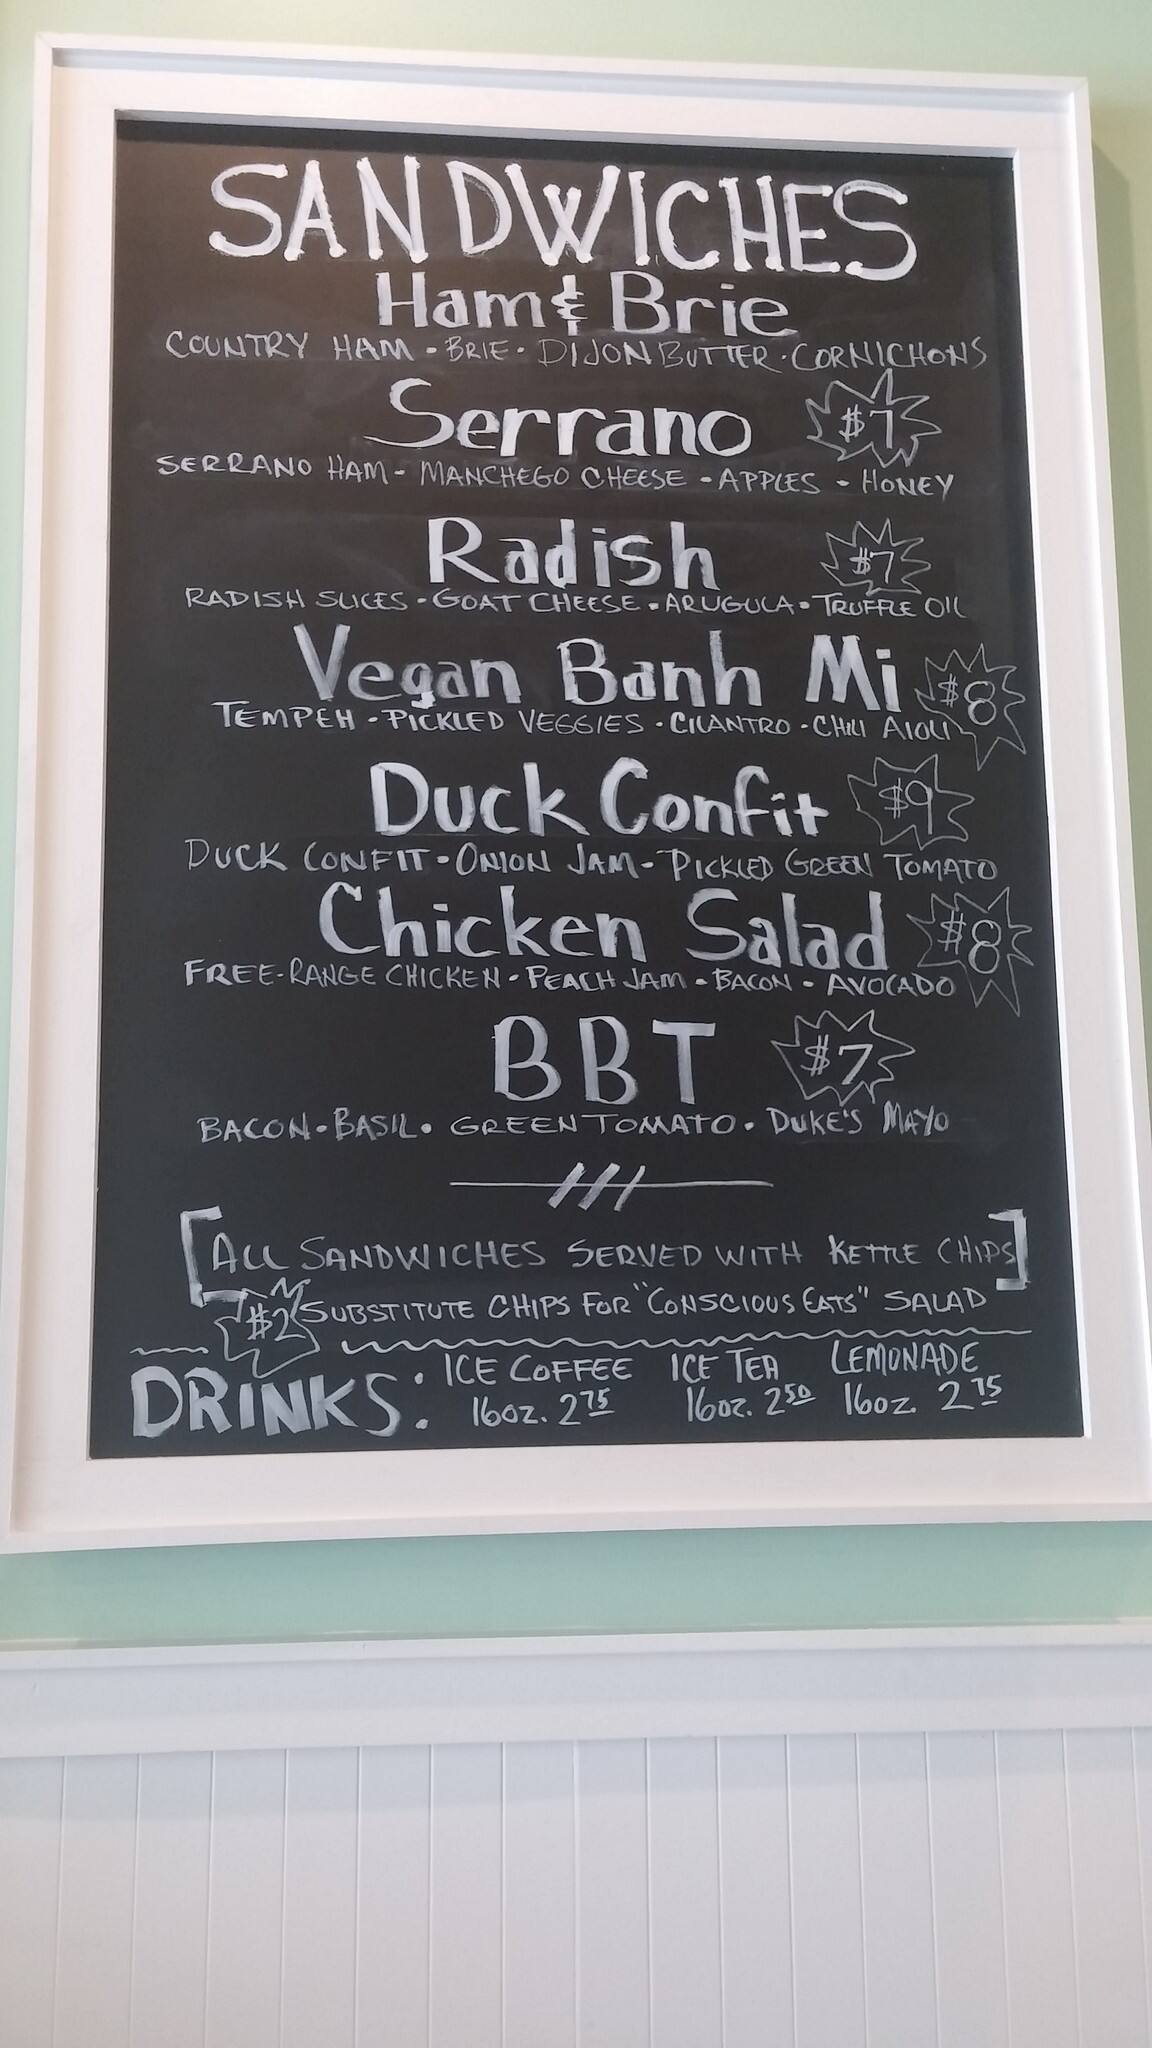 SANDWICHES
Ham & Brie
COUNTRY HAM • BRIE • DIJON BUTTER • CORNICHONS
Serrano $7
SERRANO HAM - MANCHEGO CHEESE • APPLES • HONEY
Radish $7
RADISH SLICES • GOAT CHEESE • ARUGULA • TRUFFLE OIL
Vegan Banh Mi $8
TEMPEH • PICKLED VEGGIES • CILANTRO • CHILI AIOLI
Duck Confit $9
DUCK CONFIT • ONION JAM - PICKLED GREEN TOMATO
Chicken Salad $8
FREE-RANGE CHICKEN • PEACH JAM • BACON • AVOCADO
BBT $7
BACON • BASIL • GREEN TOMATO • DUKE'S MAYO
[ALL SANDWICHES SERVED WITH KETTLE CHIPS]
$2 SUBSTITUTE CHIPS FOR "CONSCIOUS EATS" SALAD
DRINKS: ICE COFFEE ICE TEA LEMONADE
16oz. 2 75 16oz. 2 50 16oz. 2 75